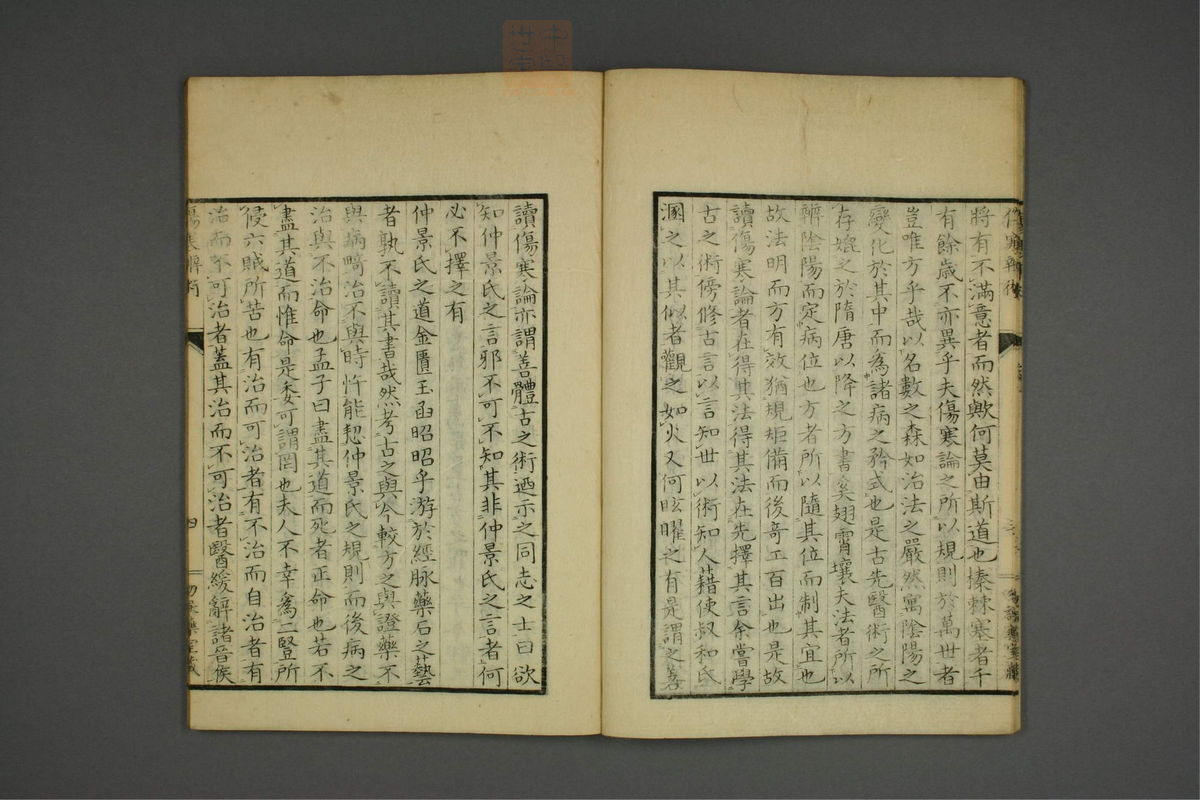 將有不滿意者而然歟何莫由斯道也榛棘塞者千
有餘歲不亦異乎夫傷寒論之所以規則於萬世者
豈唯方乎哉以名數之森如治法之嚴然寓陰陽之
變化於其中而爲諸病之矜式也是古先醫術之所
存媲之於隋唐以降之方書奚翅霄壤夫法者所以
辨陰陽而定病位也方者所以隨其位而制其宜也
故法明而方有效猶規矩備而後奇工百出也是故
讀傷寒論者在得其法得其法在先擇其言余嘗學
古之術傍修古言以言知世以術知人藉使叔和氏
溷之以其似者觀之如火又何眩曜之有是謂之善
讀傷寒論亦謂善體古之術迺示之同志之士曰欲
知仲景氏之言邪不可不知其非仲景氏之言者何
必不擇之有
仲景氏之道金匱玉函昭昭乎游於經脉藥石之藝
者孰不讀其書哉然考古之與今較方之與證藥不
與病畸治不與時忤能契仲景氏之規則而後病之
治與不治命也孟子曰盡其道而死者正命也若不
盡其道而惟命是委可謂罔也夫人不幸爲二豎所
侵六賊所苦也有治而可治者有不治而自治者有
治而不可治者蓋其治而不可治者醫緩辭諸晉侯
四